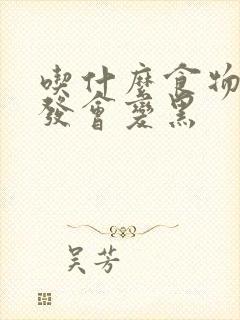 喫什麼食物
發會變黑
吴芳